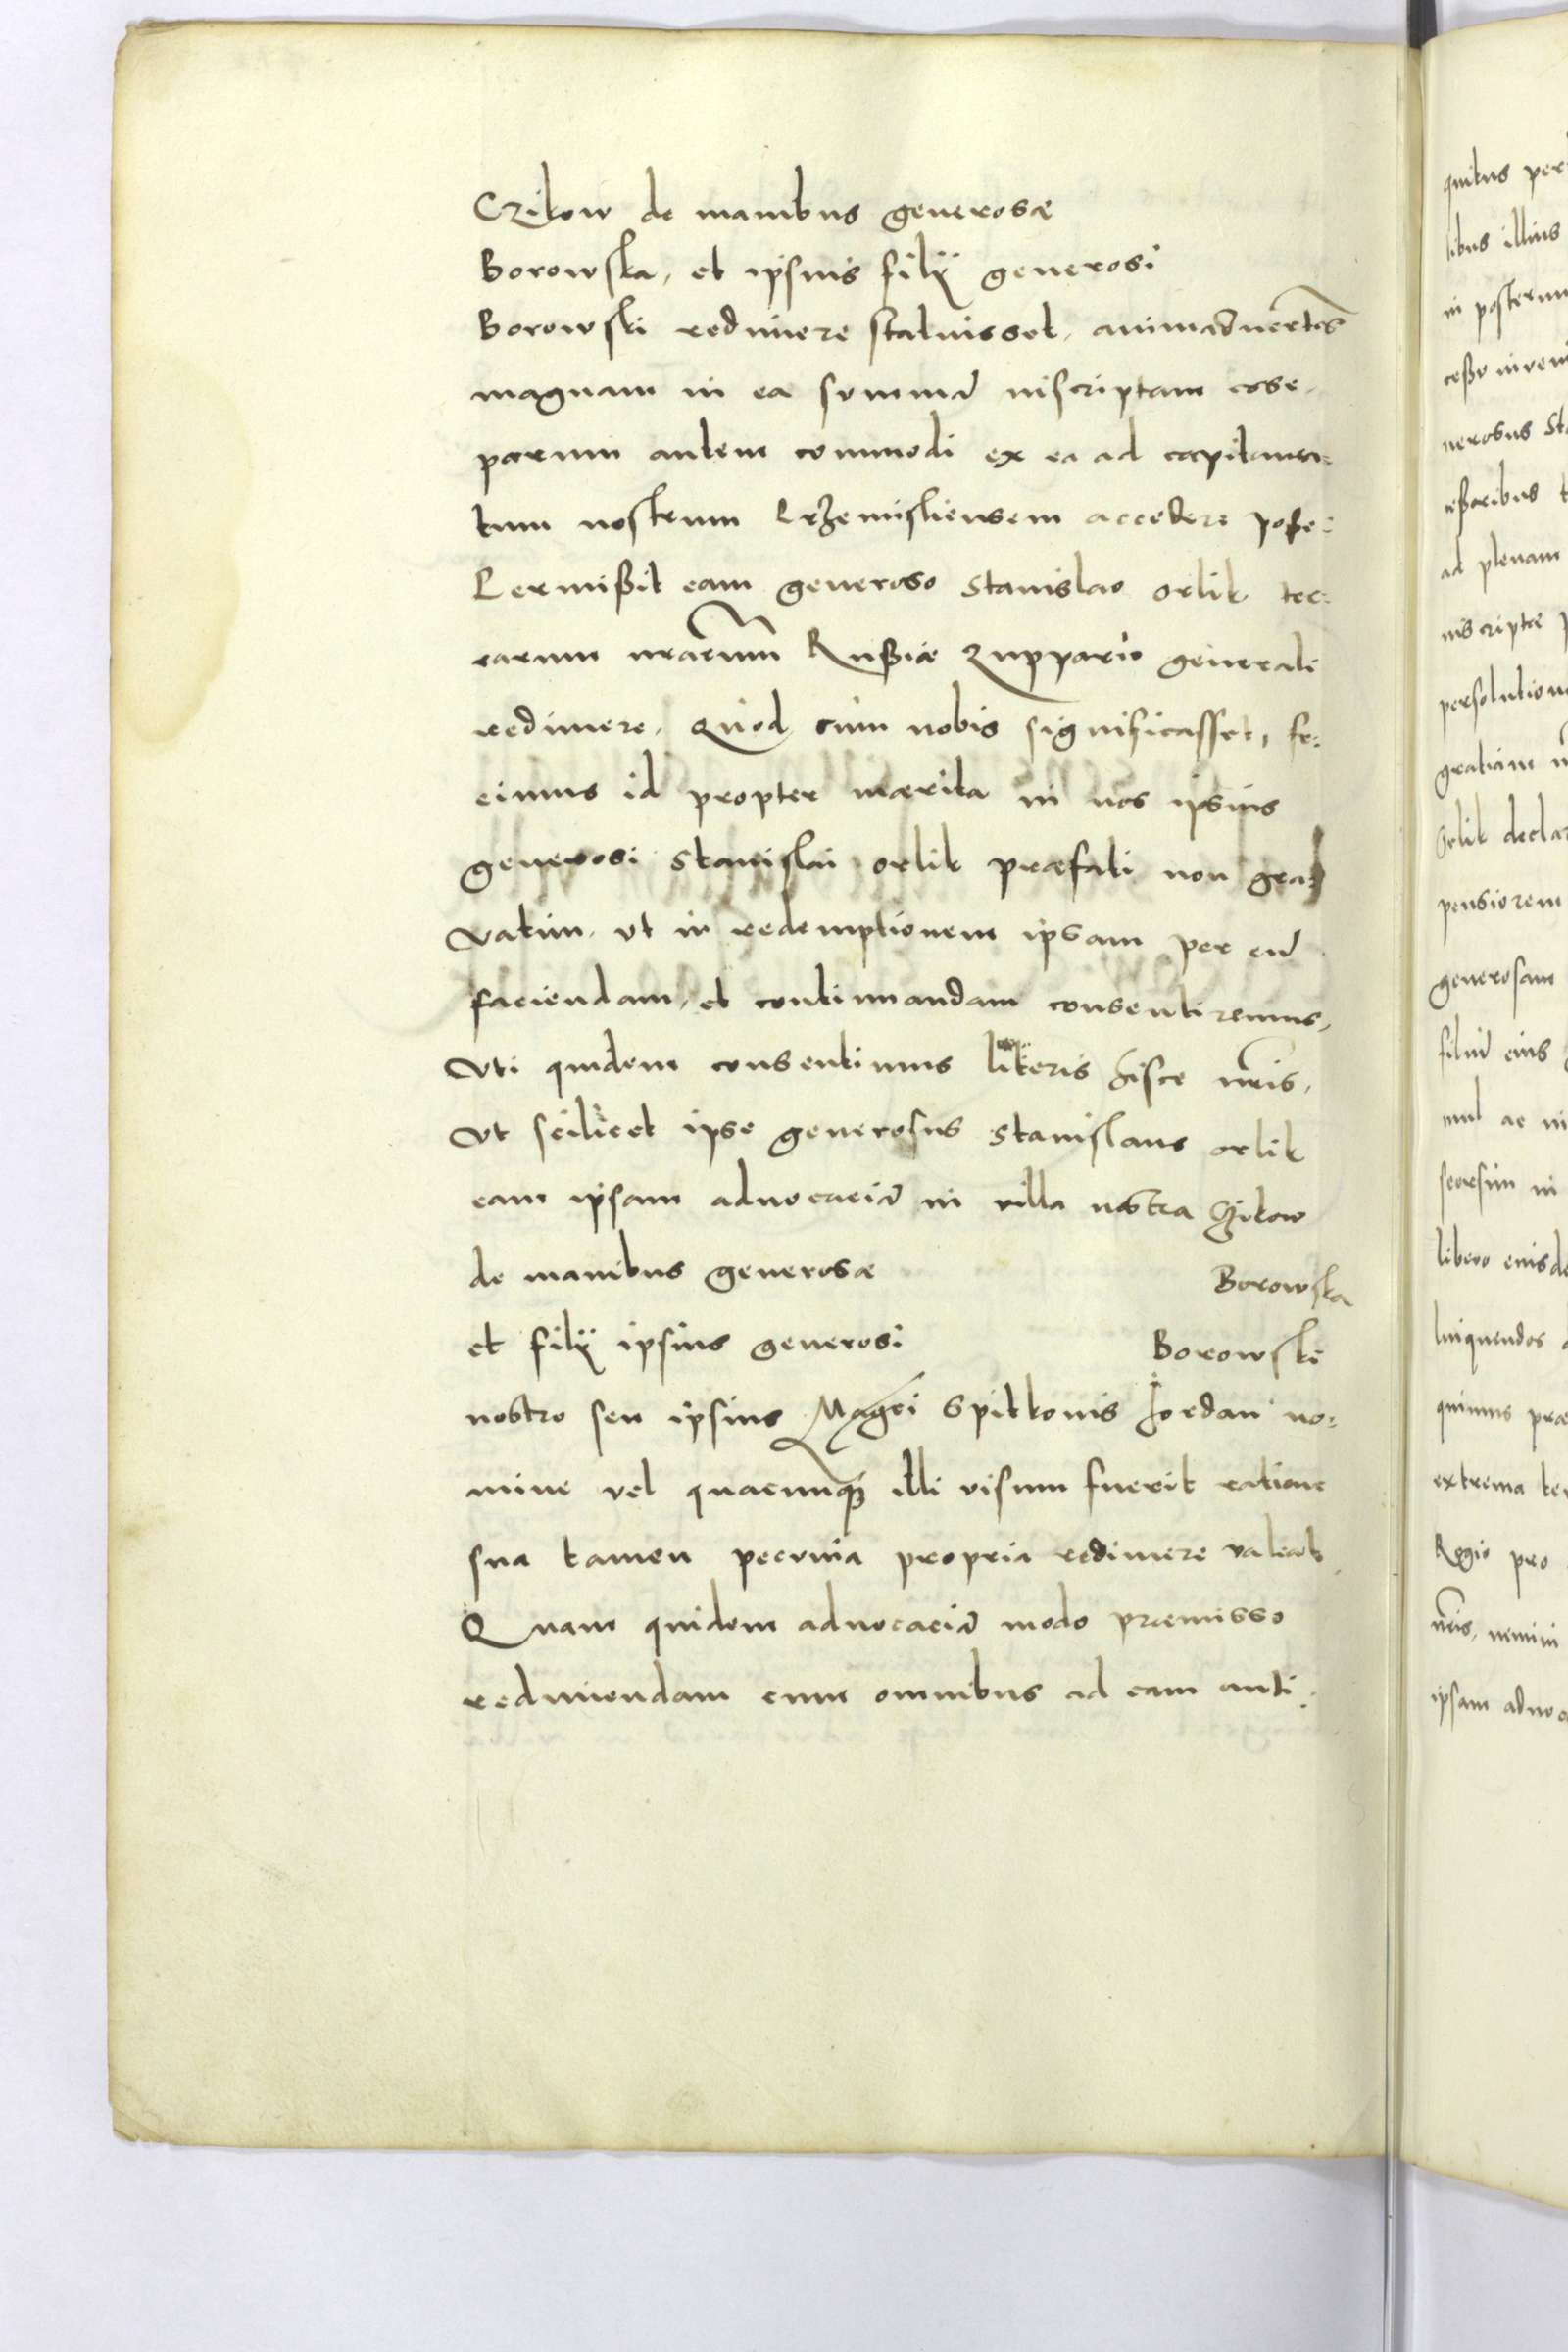 Czikow de manibus generosæ
Borowska, et ipsius filÿ generosi
Borowski redimere statuisset, animaduertes
magnam in ea summā inscriptam esse,
parum autem commodi ex ea ad capitanea:
tum nostrum Przemisliensem accedere poße:
Permißit eam generoso Stanislao Orlik ter:
rarum nrarum Rußiæ Zuppario generali
redimere, Quod cum nobis significasset, fe:
cimus id propter mærita in nos ipsius
generosi Stanislai Orlik præfati non gra:
vatim, vt in redemptionem ipsam per eū
faciendam, et continuandam consentiremus,
Vti quidem consentimus literis hisce nris,
Vt scilicet ipse generosus Stanislaus Orlik
eam ipsam aduocaciā in villa nostra Czikow
de manibus generosæ Borowska
et filÿ ipsius generosi Borowski
nostro seu ipsius Magci Spitkonis Jordan no:
mine vel quacunq illi visum fuerit ratione
sua tamen pecunia propria redimere valeat,
Quam quidem aduocaciā modo premisso
redimendam cum omnibus ad eam anti:
quitus per
libus illius
in posterum
ceßu inven
nerosus St
ceßoribus
ad plenam
inscriptæ
persolution
gratiam
Orlik decla
pensiorem
generosam
filiū eius
mul ac in
seorsim in
libero eiusde
linquendos
quimus præ
extrema te
Regio pro
nris, nemini
ipsam aduoca